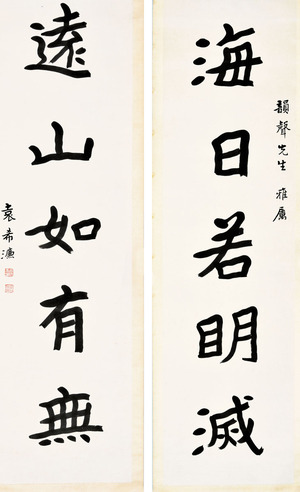 韻聲先生 雅屬
海日若明滅
遠山如有無
袁希濂